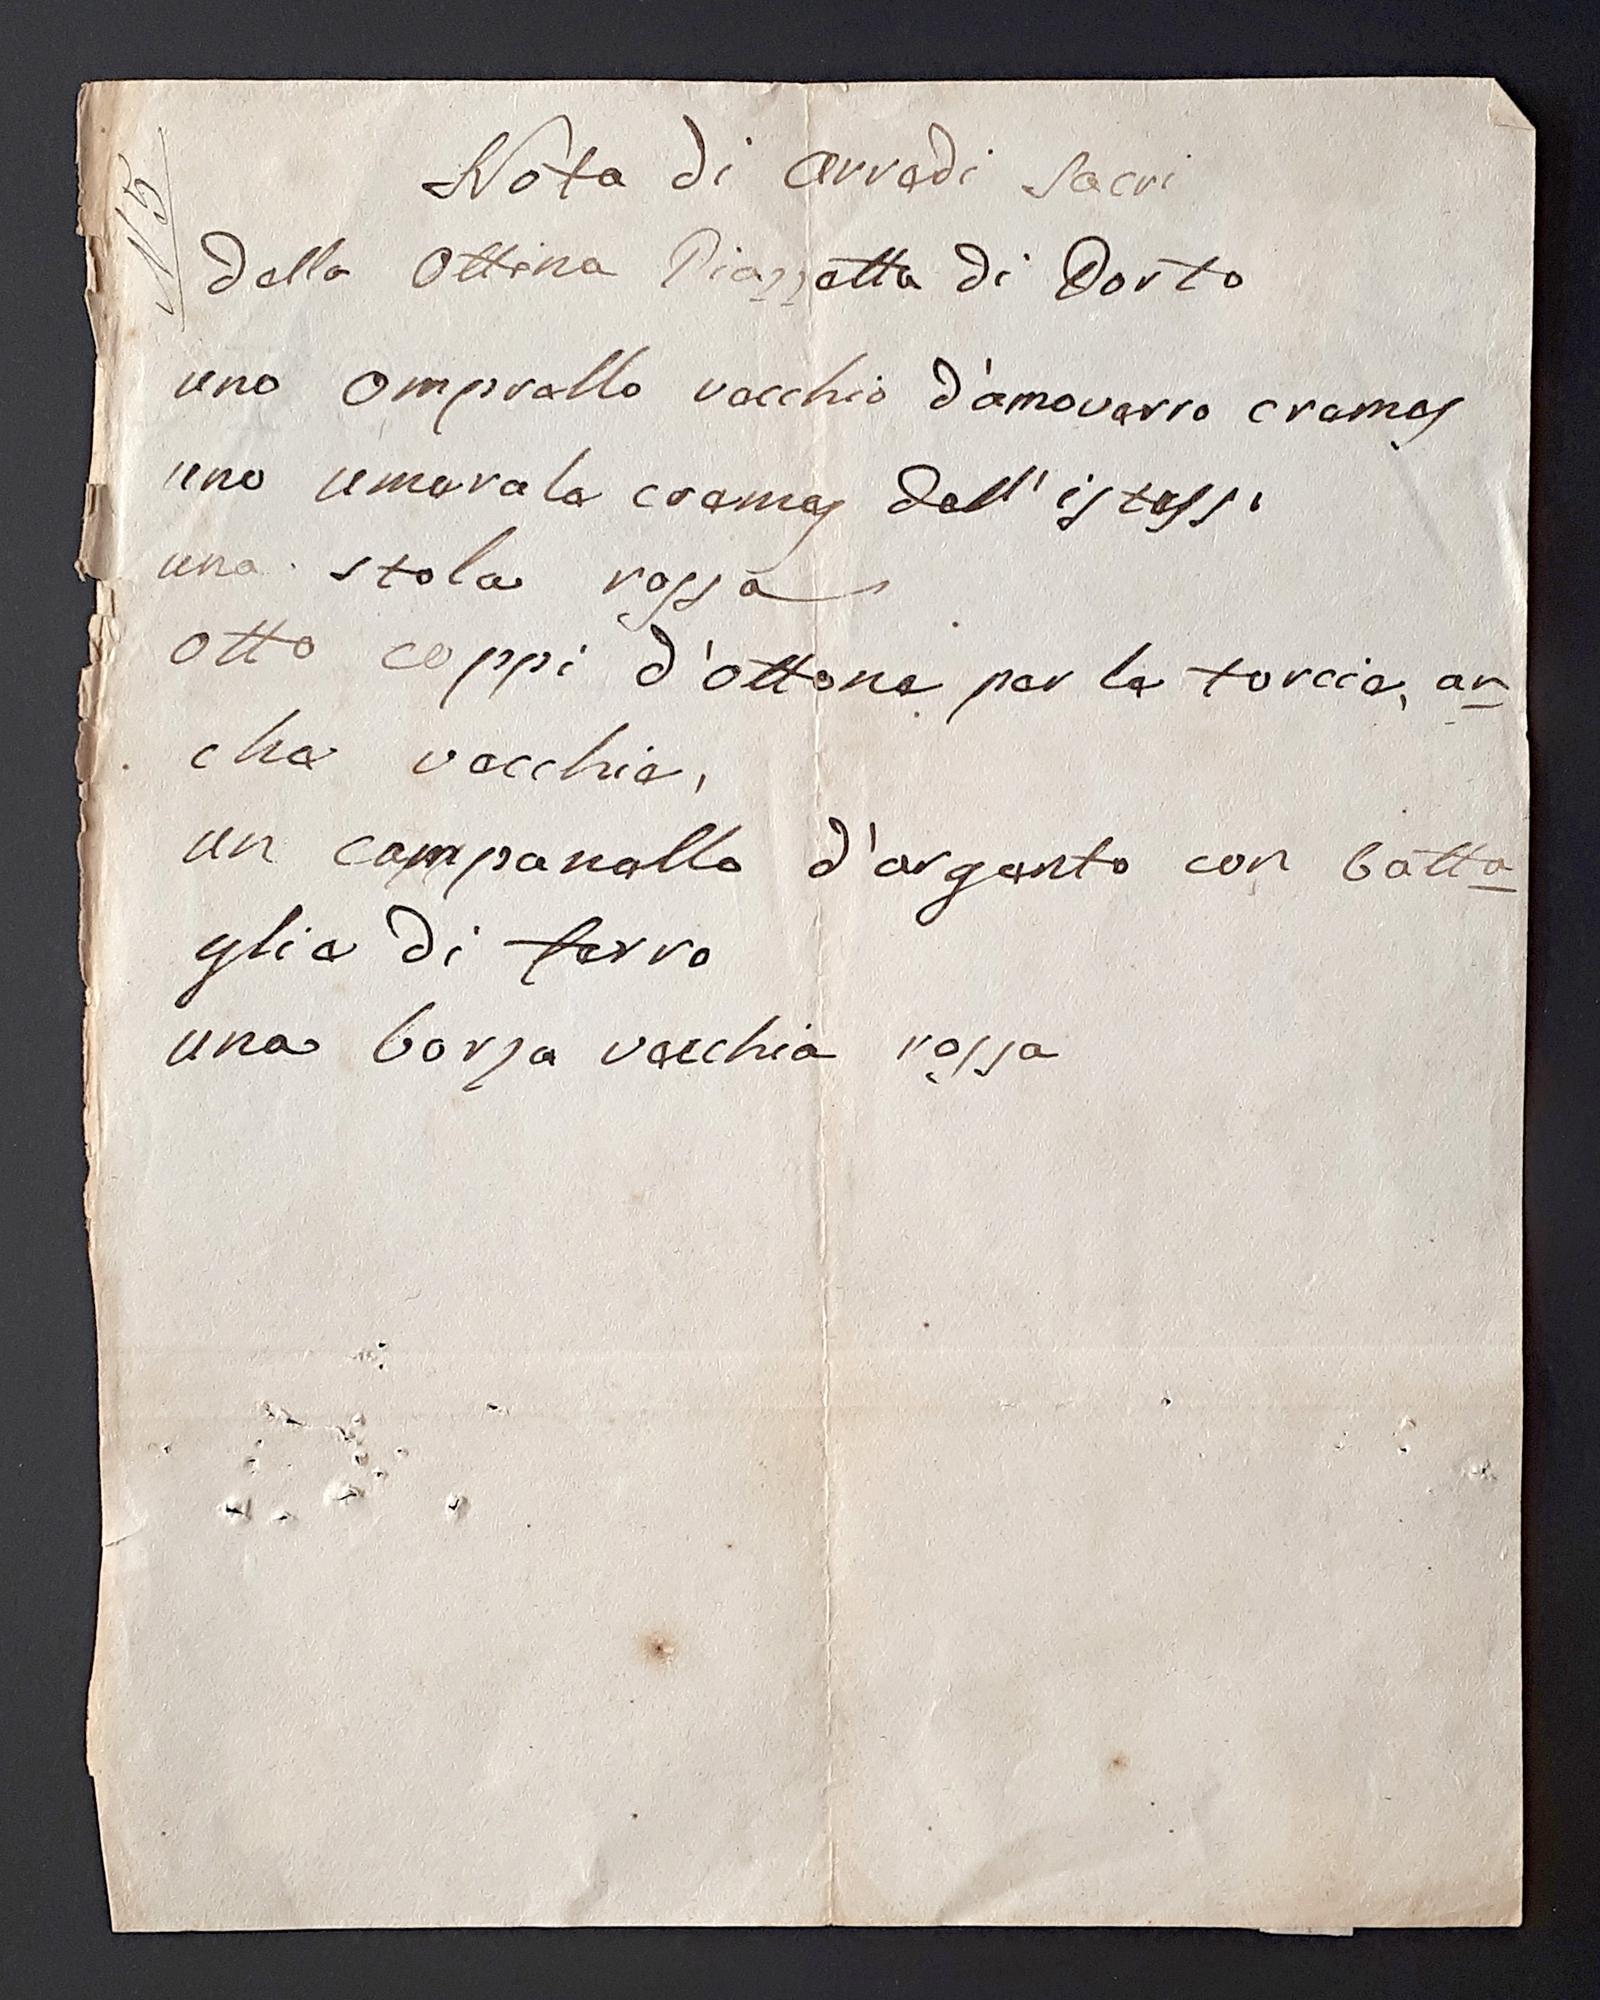 N 5
Nota di arredi sacri
della Ottina Piazzetta di Porto
uno omprello vecchio d'amoverro cremes
uno umerale cremes dell'istess
una stola rossa
otto coppi d'ottone per le torcie, an
che vecchie,
un campanello d'argento con batta
glie di ferro
una borza vecchia rossa